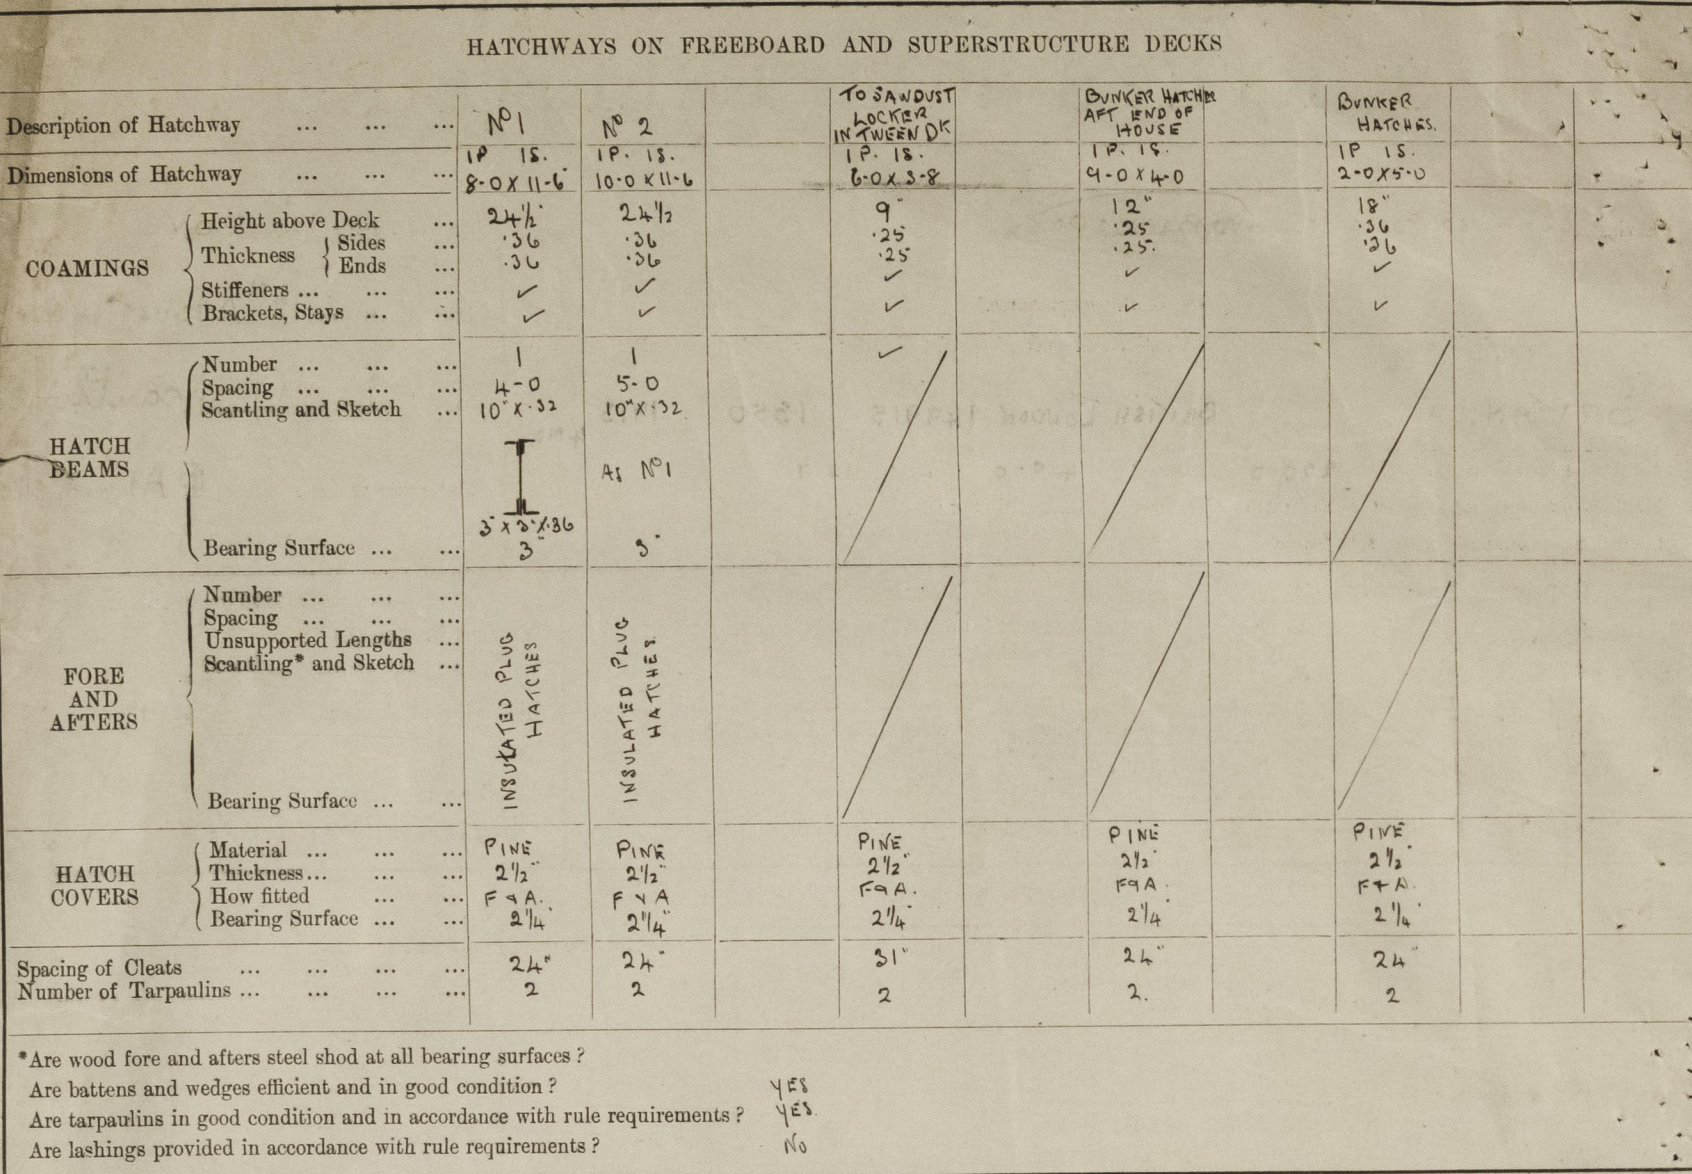 HATCHWAYS ON FREEBOARD AND SUPERSTRUCTURE DECKS
Description of Hatchway ... ... ... No 1 No 2 TO SAWDUST LOCKER IN TWEEN DK BUNKER HATCHES AFT END OF HOUSE BUNKER HATCHES.
1P 1S. 1P. 1S. 1P. 1S. 1P. 1S. 1P 1S.
Dimensions of Hatchway ... ... ... 8-0 X 11-6 10-0 X 11-6 6-0 X 3-8 9-0 X 4-0 2-0 X 5-0
COAMINGS
Height above Deck ... 24½" 24½ 9" 12" 18"
Thickness
Sides ... .36 .36 .25 .25 .36
Ends ... .36 .36 .25 .25. .36
Stiffeners ... ... ... ✓ ✓ ✓ ✓ ✓
Brackets, Stays ... ... ✓ ✓ ✓ ✓ ✓
HATCH BEAMS
Number ... ... ... 1 1 ✓
Spacing ... ... ... 4-0 5-0
Scantling and Sketch ... 10" X .32 10" X .32
As No 1
3" X 3" X .36
Bearing Surface ... ... 3" 3"
FORE AND AFTERS
Number ... ... ...
Spacing ... ... ...
Unsupported Lengths ...
Scantling* and Sketch ...
INSULATED PLUG HATCHES
INSULATED PLUG HATCHES.
Bearing Surface ... ...
HATCH COVERS
Material ... ... ... PINE PINE PINE PINE PINE
Thickness... ... ... 2½" 2½" 2½" 2½" 2½"
How fitted ... ... F & A. F & A F & A. F & A. F & A.
Bearing Surface ... ... 2¼" 2¼" 2¼" 2¼" 2¼"
Spacing of Cleats ... ... ... ... 24" 24" 31" 24" 24"
Number of Tarpaulins ... ... ... ... 2 2 2 2. 2
*Are wood fore and afters steel shod at all bearing surfaces ?
Are battens and wedges efficient and in good condition ? YES
Are tarpaulins in good condition and in accordance with rule requirements ? YES.
Are lashings provided in accordance with rule requirements ? No